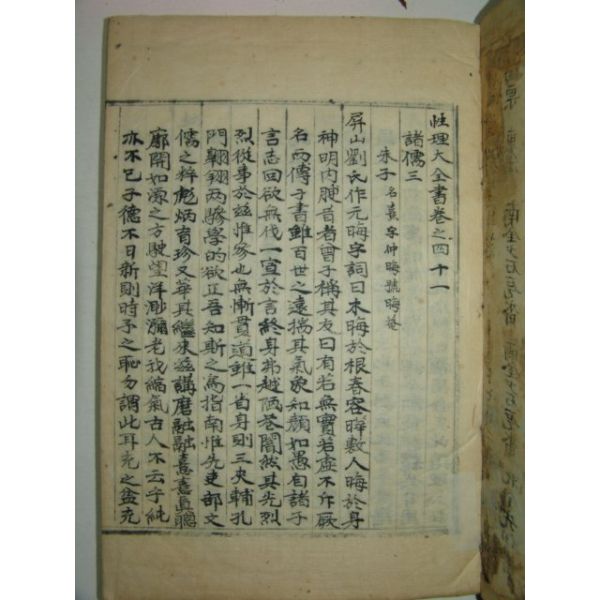 性理大全書卷之四十一
諸儒三
朱子 名熹字仲晦號晦菴
屛山劉氏作元晦字詞曰木晦於根春容曄敷人晦於身
神明內腴昔者曾子稱其友曰有若無實若虛不斥厥
名而傳于書雖百世之遠揣其氣象知顏如愚自諸子
言志回欲無伐一宣於言終身弗越陋巷闇然其光烈
烈從事於玆惟參也無慚貫道雖一省身則三夾輔孔
門翺翔兩驂學的欲正吾知斯之爲指南惟先吏部文
儒之粹彪炳育珍又華其繼來玆講磨融融熹熹眞聰
廓開如源之方駛望洋渺瀰老我縮氣古人不云乎純
亦不已子德不日新則時予之恥勿謂此耳充之益充